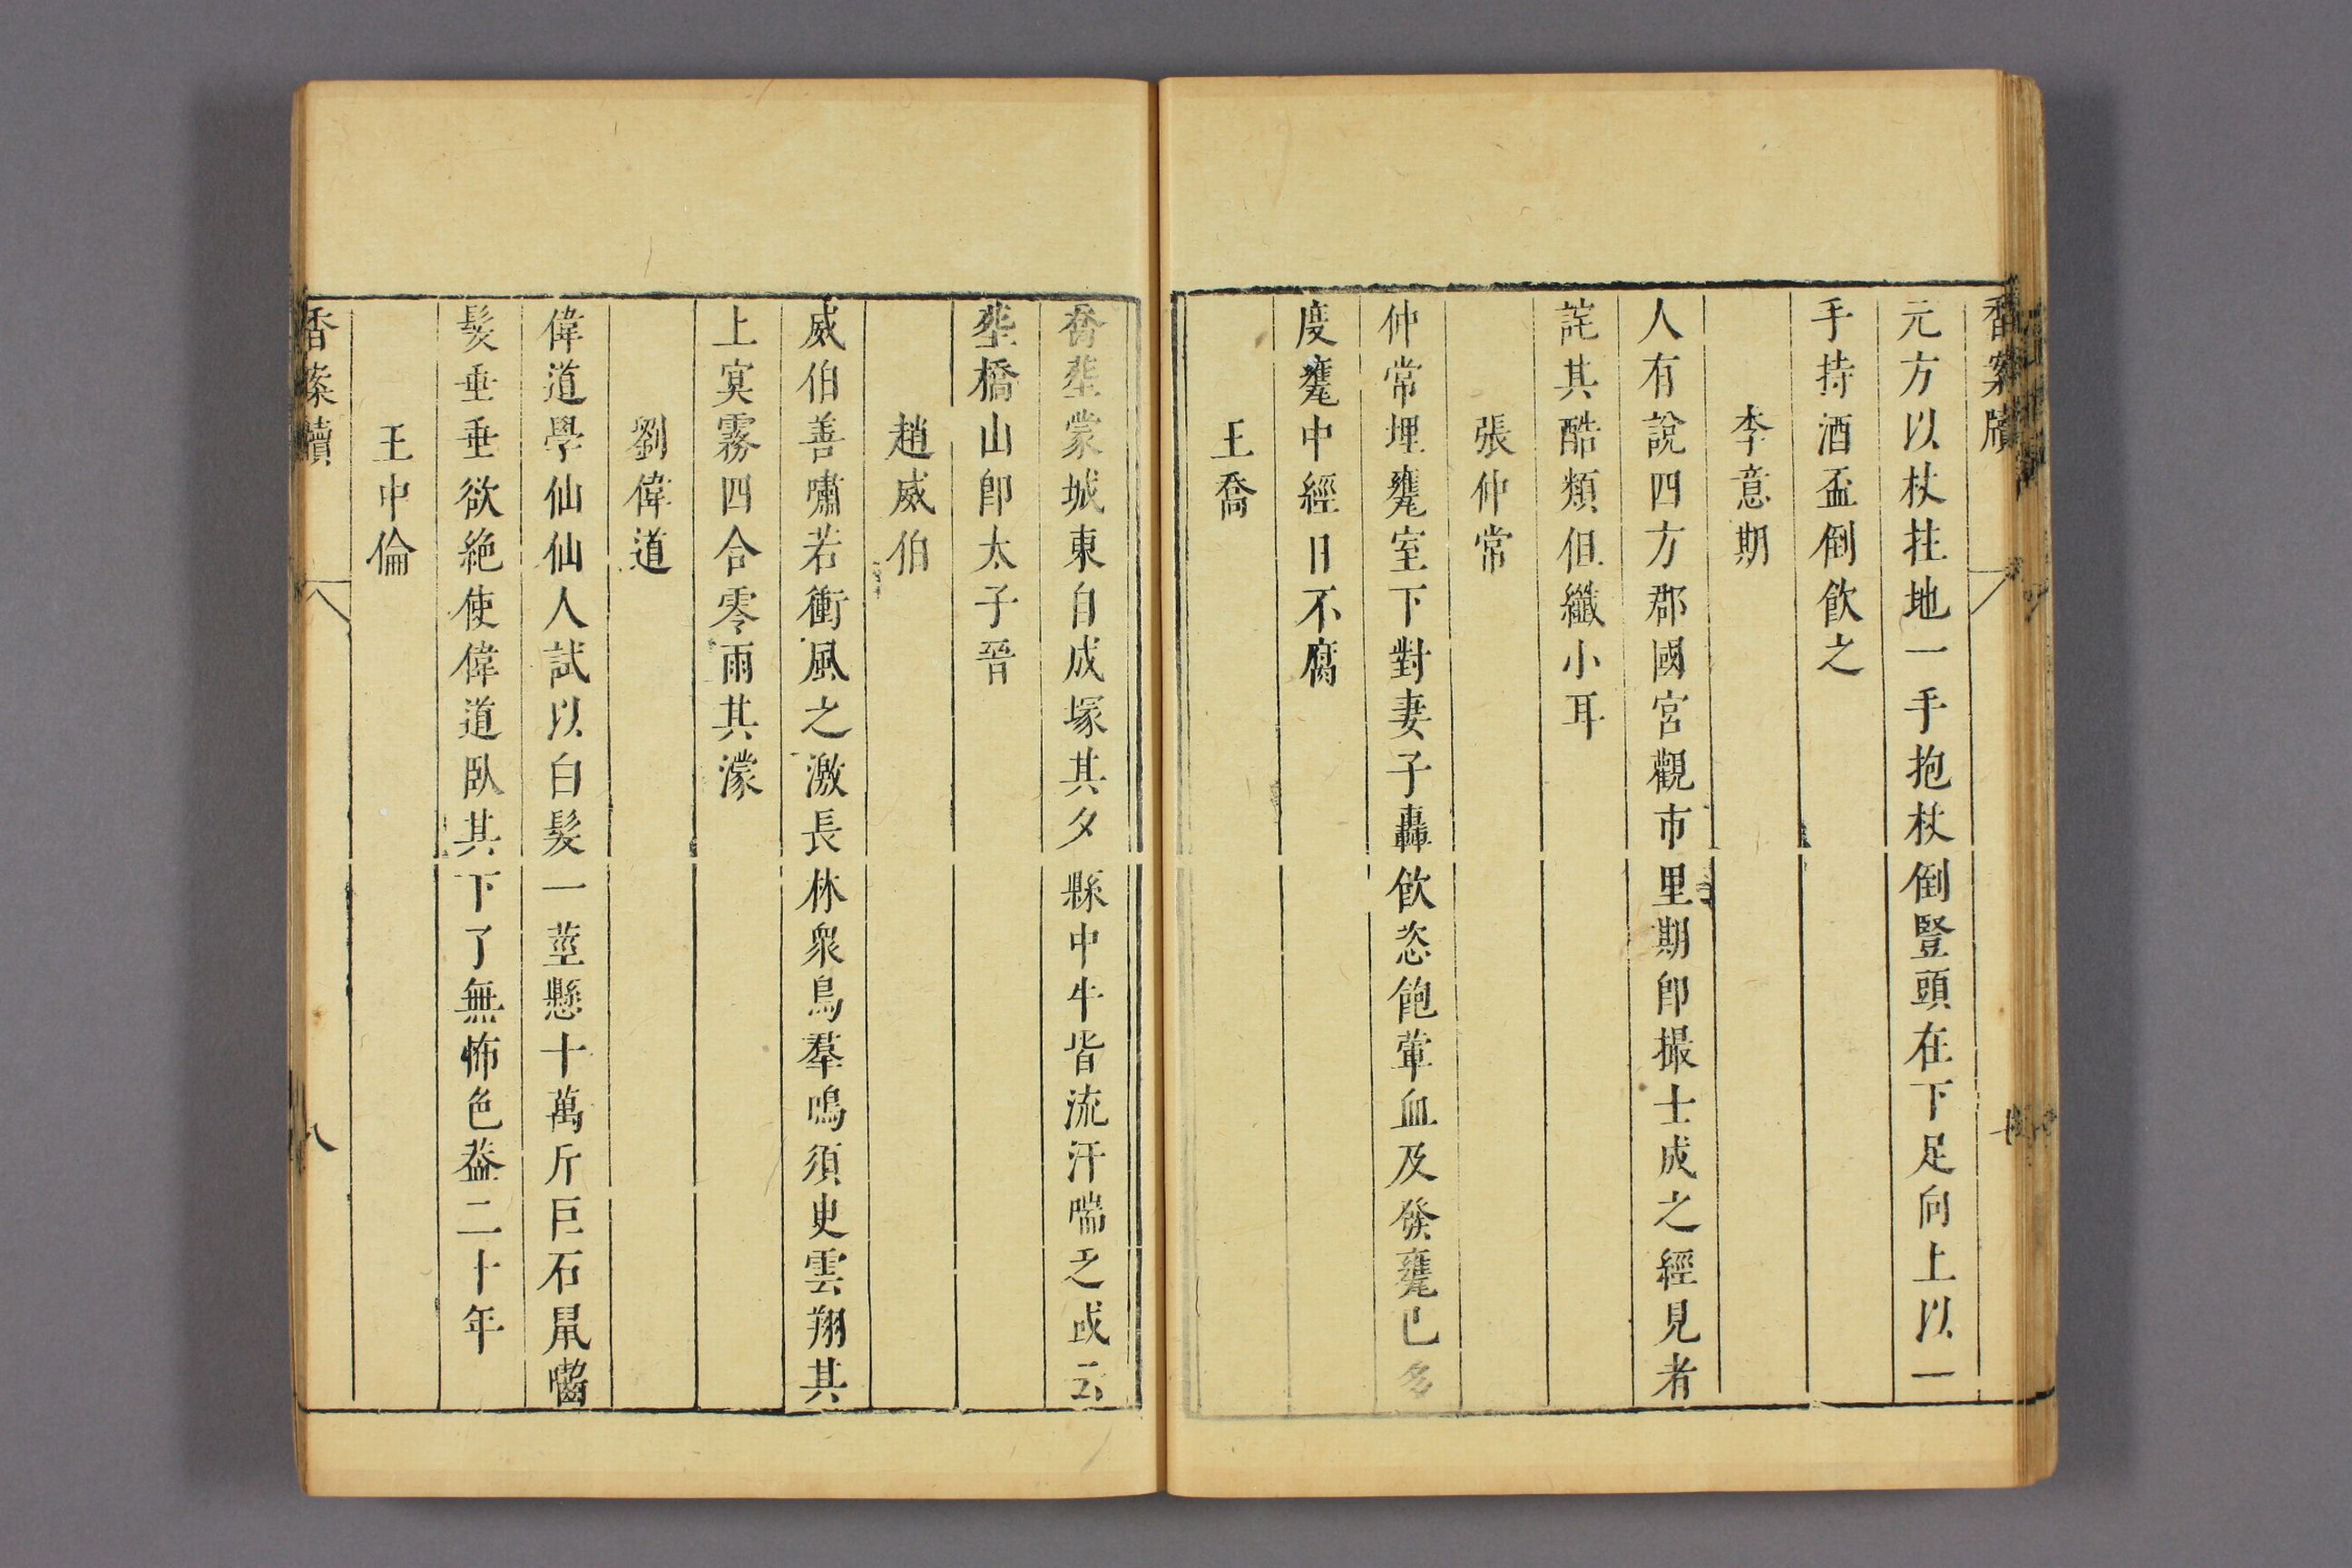 香案牘
元方以杖拄地一手抱杖倒豎頭在下足向上以一
手持酒盃倒飲之
李意期
人有說四方郡國宮觀市里期卽撮土成之經見者
詫其酷類但纖小耳
張仲常
仲常埋甕室下對妻子轟飲恣飽葷血及發甕已多
度甕中經日不腐
王喬
喬塟蒙城東自成塚其夕縣中牛皆流汗喘乏或云
塟橋山卽太子晉
趙威伯
威伯善嘯若衝風之激長林衆鳥羣鳴須臾雲翔其
上㝠霧四合零雨其濛
劉偉道
偉道學仙仙人試以白髮一莖懸十萬斤巨石鼠嚙
髮垂垂欲絶使偉道臥其下了無怖色葢二十年
王中倫
香案牘
八